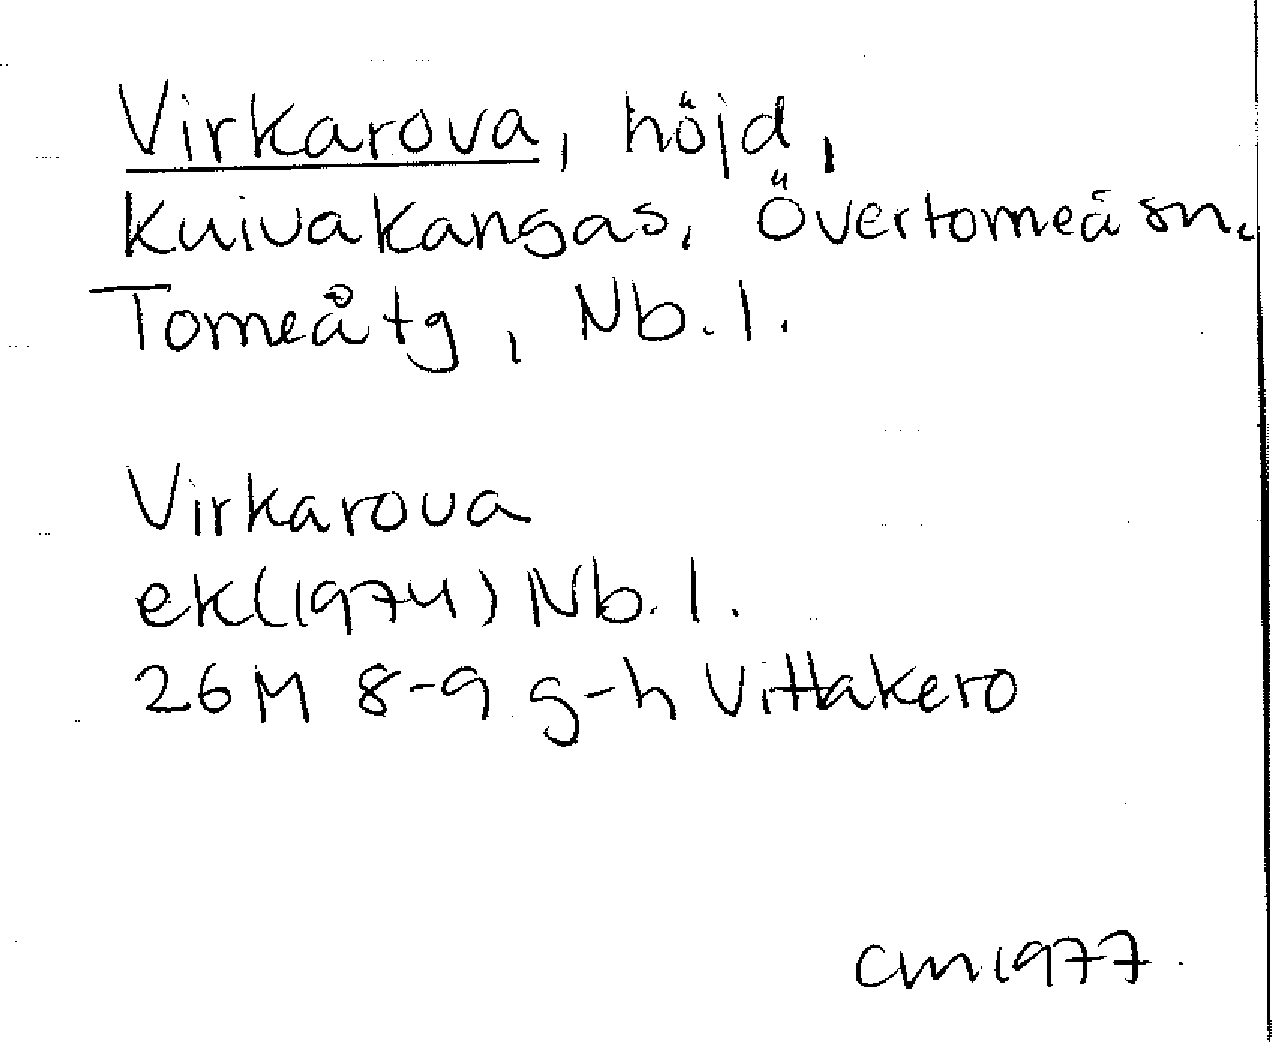 Virkarova, höjd,
Kuivakangas, Övertorneå sn,
Torneå tg, Nb. l.
Virkarova
ek(1974) Nb. l.
26M 8-9 g-h Vittakero
CM 1977.